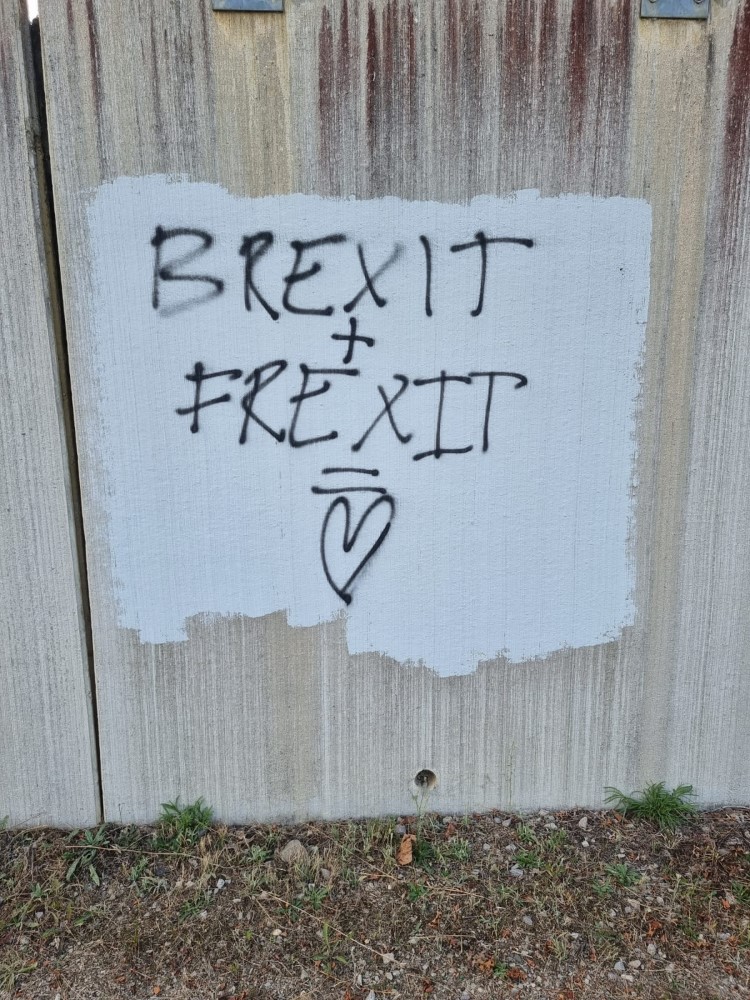 BREXIT
+
FREXIT
=
♡